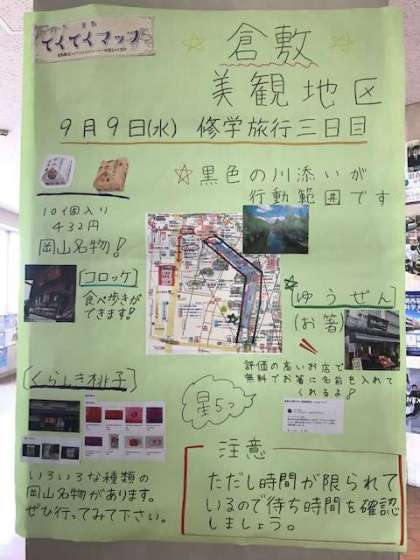 てくてくマップ
☆倉敷☆
美観地区
9月9日(水) 修学旅行三日目
☆黒色の川添いが
行動範囲です
10個入り
432円
岡山名物!
[コロッケ]
食べ歩きが
できます!
[ゆうぜん]
(お箸)
評価の高いお店で
無料でお箸に名前を入れて
くれるよ♪
[くらしき桃子]
星5つ
いろいろな種類の
岡山名物があります。
ぜひ行ってみて下さい。
注意
ただし時間が限られて
いるので待ち時間を確認
しましょう。